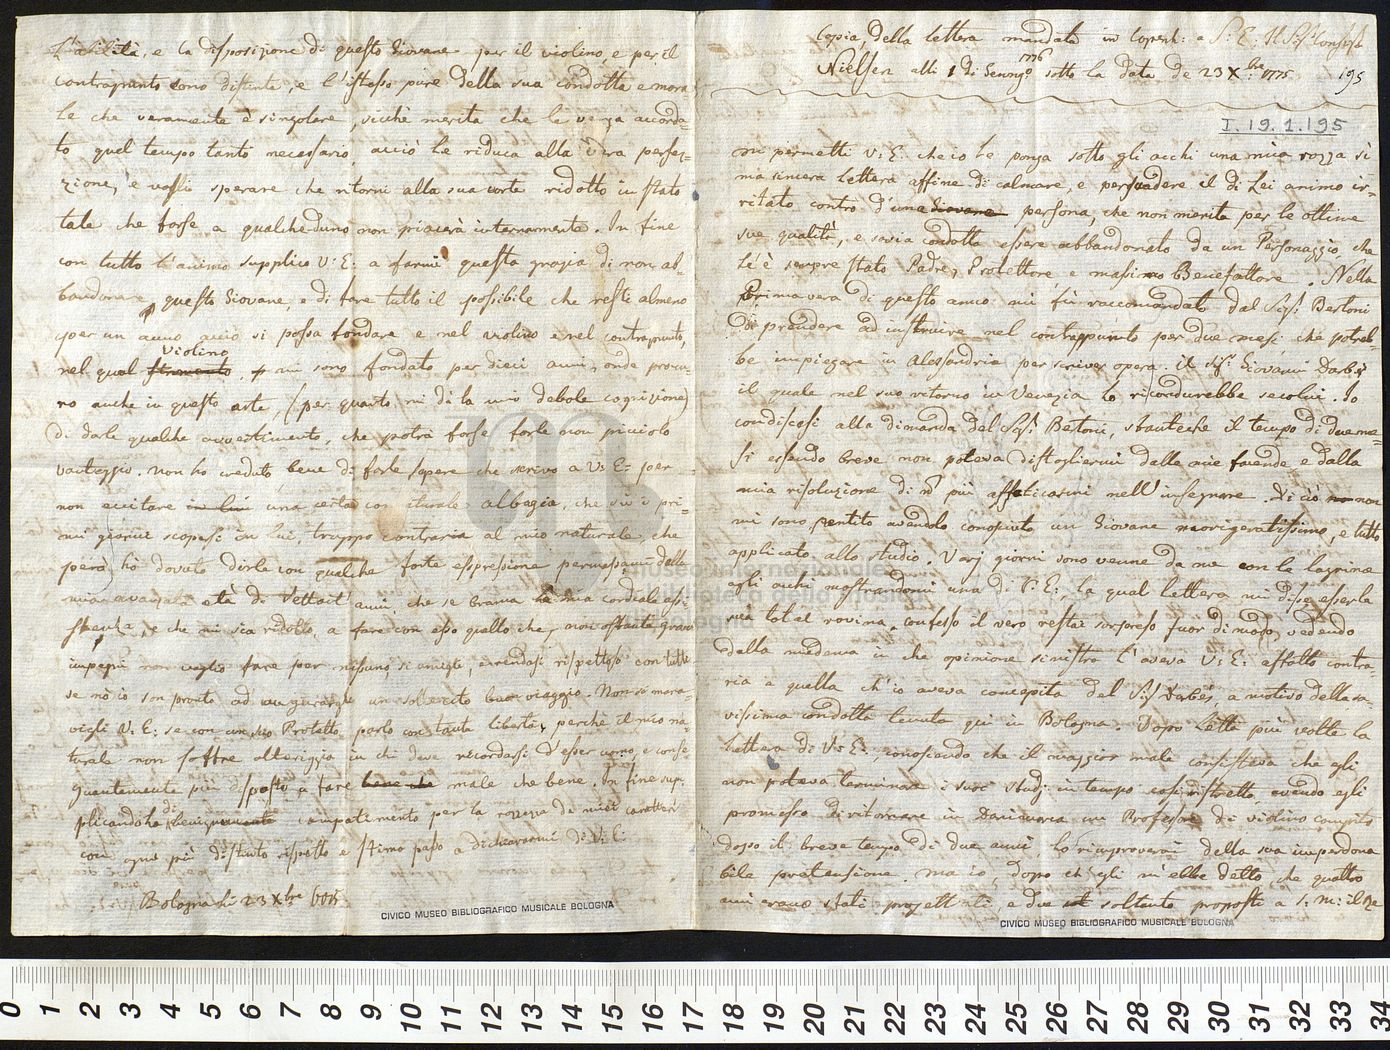 Copia, della lettera mandata in Copenh: a S: E: Il Sig.r
Nielsen alli 1 di Genn.o 1776 sotto la data de 23 Xbre 1775. 195
I. 19. 1. 195
mi permetti V: E: che io le ponga sotto gli occhi una mia rozza sì
ma sincera lettera affine di calmare, e persuadere il di Lei animo ir-
ritato contro d'una Giovane persona, che non merita per le ottime
sue qualità, e savia condotta essere abbandonato da un Personaggio, che
Lè è sempre stato Padre, Protettore, e massimo Benefattore. Nella
Primavera di questo anno mi fù raccomandato dal Sig.r Bertoni
di prendere ad instruire nel contrappunto per due mesi che potreb-
be impiegare in Alessandria per scriver opera. il Sig.r Giovanni Darbes
il quale nel suo ritorno in Venezia lo ricondurebbe secolui. Io
condiscesi alla dimanda del Sig.r Bertoni, sbantecchè il tempo di due me-
si essendo breve non poteva distogliermi dalle mie facende, e dalla
mia risoluzione di nō più affaticarmi nell'insegnare. di ciò non
mi sono pentito avendolo conosciuto un Giovane morigeratissimo, e tutto
applicato allo studio. Varj giorni sono venne da me con le lagrime
agli occhi mostrandomi una di V: E: la qual lettera mi disse esser la
sua total rovina. confesso il vero restai sorpreso fuor di modo, vedendo
dalla medema in che opinione sinistra l'aveva V: E: affatto contra-
ria a quella ch'io aveva concepita del Sig.r Darbes, a motivo della sa-
vissima condotta tenuta qui in Bologna. Dopo letta più volte la
lettera di V: E:, conoscendo che il maggior male consisteva che egli
non poteva terminar i suoi studj in tempo così ristretto, avendo egli
promesso di ritornare in Danimarca un Professore di violino compito
dopo il breve tempo di due anni, lo rimproverai della sua imperdona
bile pretensione. ma io, dopo ch'egli m'ebbe detto, che quattro
anni erano stati progettati, e due soltanto proposti a S: M: il Re
CIVICO MUSEO BIBLIOGRAFICO MUSICALE BOLOGNA
L'abilità, e la disposizione di questo Giovane per il violino, e per il
contrapunto sono distinte, e l'istesso pure della sua condotta e mora
le che veramente è singolare, sicchè merita che le venga accorda-
to quel tempo tanto necessario, acciò le riduca alla vera perfez-
zione, e voglio sperare che ritorni alla sua corte ridotto in stato
tale che forse a qualcheduno non piacerà internamente. In fine
con tutto l'animo supplico V: E: a farmi questa grazia di non ab-
bandonare questo Giovane, e di fare tutto il possibile che resti almeno
per un anno acciò si possa fondare e nel violino e nel contrapunto,
nel qual violino strumento, mi sono fondato per dieci anni, onde procu-
ro anche in questo arte, (per quanto mi dà la mia debole cognizione)
di darle qualche avvertimento, che potrà forse farle non picciolo
vantaggio. non ho creduto bene di farle sapere che scrivo a V: E: per
non eccitare in lui una certa con naturale albagia, che sin i pri-
mi giorni scopersi in lui troppo contraria al mio naturale, che
però ho dovuto dirle con qualche forte espressione
mia avanzata età di settant'anni, che se brama la mia cordiale assi
stenza, e che mi sia ridotto, a fare con esso quello che, non ostanti gravi
impegni non voglio fare per nissuno, si umigli, e rendasi rispettoso con tutti
se nò io son pronto ad augurargli un sollecito buon viaggio. Non si mara-
vigli V: E: se con un suo Protetto parlo con tanta libertà, perchè il mio na
turale non soffre alteriggia in chi deve ricordarsi d'esser uomo, e conse-
guentemente più disposto a fare bene che male che bene. In fine sup-
plicandola di benignamente compatimento per la rozzezza de miei caratteri
con ogni più distinto rispetto e stima passo a dichiararmi di V: E:
Bologna li 23 Xbre 1775
CIVICO MUSEO BIBLIOGRAFICO MUSICALE BOLOGNA
museo internazionale
biblioteca della musica
bologna
0 1 2 3 4 5 6 7 8 9 10 11 12 13 14 15 16 17 18 19 20 21 22 23 24 25 26 27 28 29 30 31 32 33 34